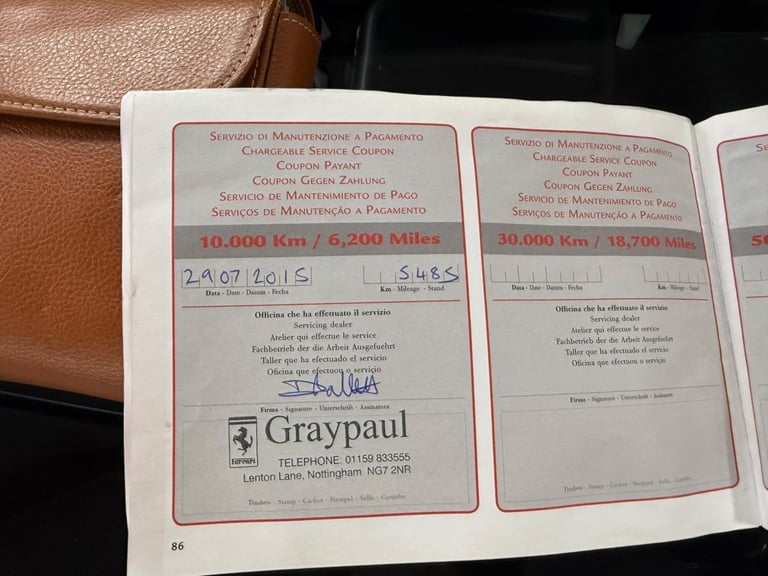 SERVIZIO DI MANUTENZIONE A PAGAMENTO
CHARGEABLE SERVICE COUPON
COUPON PAYANT
COUPON GEGEN ZAHLUNG
SERVICIO DE MANTENIMIENTO DE PAGO
SERVIÇOS DE MANUTENÇÃO A PAGAMENTO
10.000 Km / 6,200 Miles
29 07 2015 5485
Data - Date - Datum - Fecha Km - Mileage - Stand
Officina che ha effettuato il servizio
Servicing dealer
Atelier qui effectue le service
Fachbetrieb der die Arbeit Ausgefuehrt
Taller que ha efectuado el servicio
Oficina que efectuou o serviço
Firma - Signature - Unterschrift - Assinatura
Ferrari
Graypaul
TELEPHONE: 01159 833555
Lenton Lane, Nottingham NG7 2NR
Timbro - Stamp - Cachet - Stempel - Sello - Carimbo
86
SERVIZIO DI MANUTENZIONE A PAGAMENTO
CHARGEABLE SERVICE COUPON
COUPON PAYANT
COUPON GEGEN ZAHLUNG
SERVICIO DE MANTENIMIENTO DE PAGO
SERVIÇOS DE MANUTENÇÃO A PAGAMENTO
30.000 Km / 18,700 Miles
Data - Date - Datum - Fecha Km - Mileage - Stand
Officina che ha effettuato il servizio
Servicing dealer
Atelier qui effectue le service
Fachbetrieb der die Arbeit Ausgefuehrt
Taller que ha efectuado el servicio
Oficina que efectuou o serviço
Firma - Signature - Unterschrift - Assinatura
Timbro - Stamp - Cachet - Stempel - Sello - Carimbo